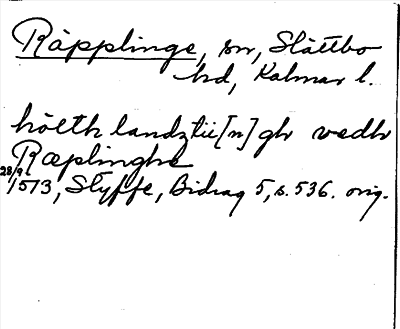 Räpplinge, sn, Slättbo
hd, Kalmar l.
hölth landztii[n]gh vedh
Ræplinghe
28/9 1513, Styffe, Bidrag 5, s. 536. orig.